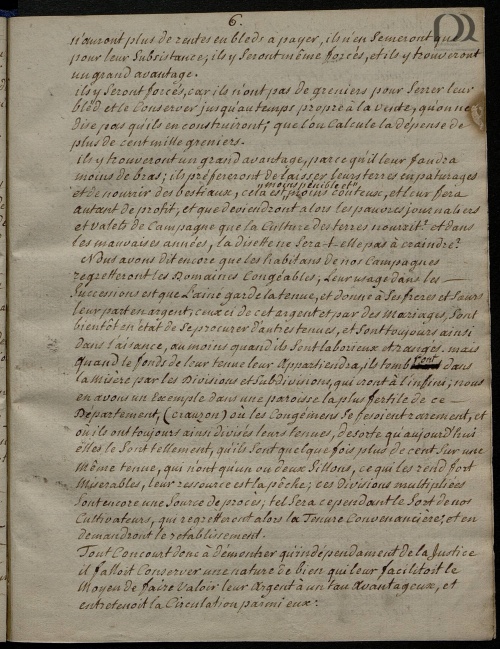 6.
n'auront plus de rentes en bleds a payer, ils n'en Semeront que
pour leur Subsistance; ils y Seront même forcés, et ils y trouveront
un grand avantage.
ils y Seront forcés, car ils n'ont pas de greniers pour Serrer leur
bled, et le Conserver jusqu'au temps propre à la vente, qu'on ne
dise pas qu'ils en construiront; que l'on Calcule la dépense de
plus de cent mille greniers.
ils y trouveront un grand avantage, parce qu'il leur faudra
moins de bras; ils préfereront de laisser leurs terres en paturages
et de nourrir des bestiaux, cela est "moins penible et" moins couteux, et leur fera
autant de profit; et que deviendront alors les pauvres journaliers
et Valets de Campagne que la Culture des terres nourrit? et dans
les mauvaises années, la disette ne Sera-t-elle pas à craindre?
Nous avons dit encore que les habitans de nos Campagnes
regretteront les Domaines Congéables; Leur usage dans les
Successions est que L'ainé garde la tenue, et donne à Ses freres et Sœurs
leur part en argent; ceux ci de cet argent et par des Mariages, Sont
bientôt en état de Se procurer d'autres tenues, et Sont toujours ainsi
dans l'aisance, au moins quand ils Sont laborieux et rangés. mais
quand le fonds de leur tenue leur Appartiendra, ils tomberont dans
la Misère par les Divisions et Subdivisions, qui iront à l'infini; nous
en avons un Exemple dans une paroisse la plus fertile de ce
Département, (crauzon) où les Congémens Se fesoient rarement, et
où ils ont toujours ainsi divisés leurs tenues, desorte qu'aujourd'hui
elles le Sont tellement, qu'ils Sont quelque fois plus de cent Sur une
Même tenue, qui n'ont qu'un ou deux Sillons, ce qui les rend fort
Miserables, leur ressource est la pêche; ces Divisions multipliées
Sont encore une Source de procès; tel Sera cependant le Sort de nos
Cultivateurs, qui regretteront alors la Tenure Convenancière, et en
demandront le retablissement.
Tout Concourt donc à démontrer qu'indépendament de la Justice
il falloit Conserver une nature de bien qui leur facilitoit le
Moyen de faire Valoir leur Argent à un tau Avantageux, et
entretenoit la Circulation parmi eux.